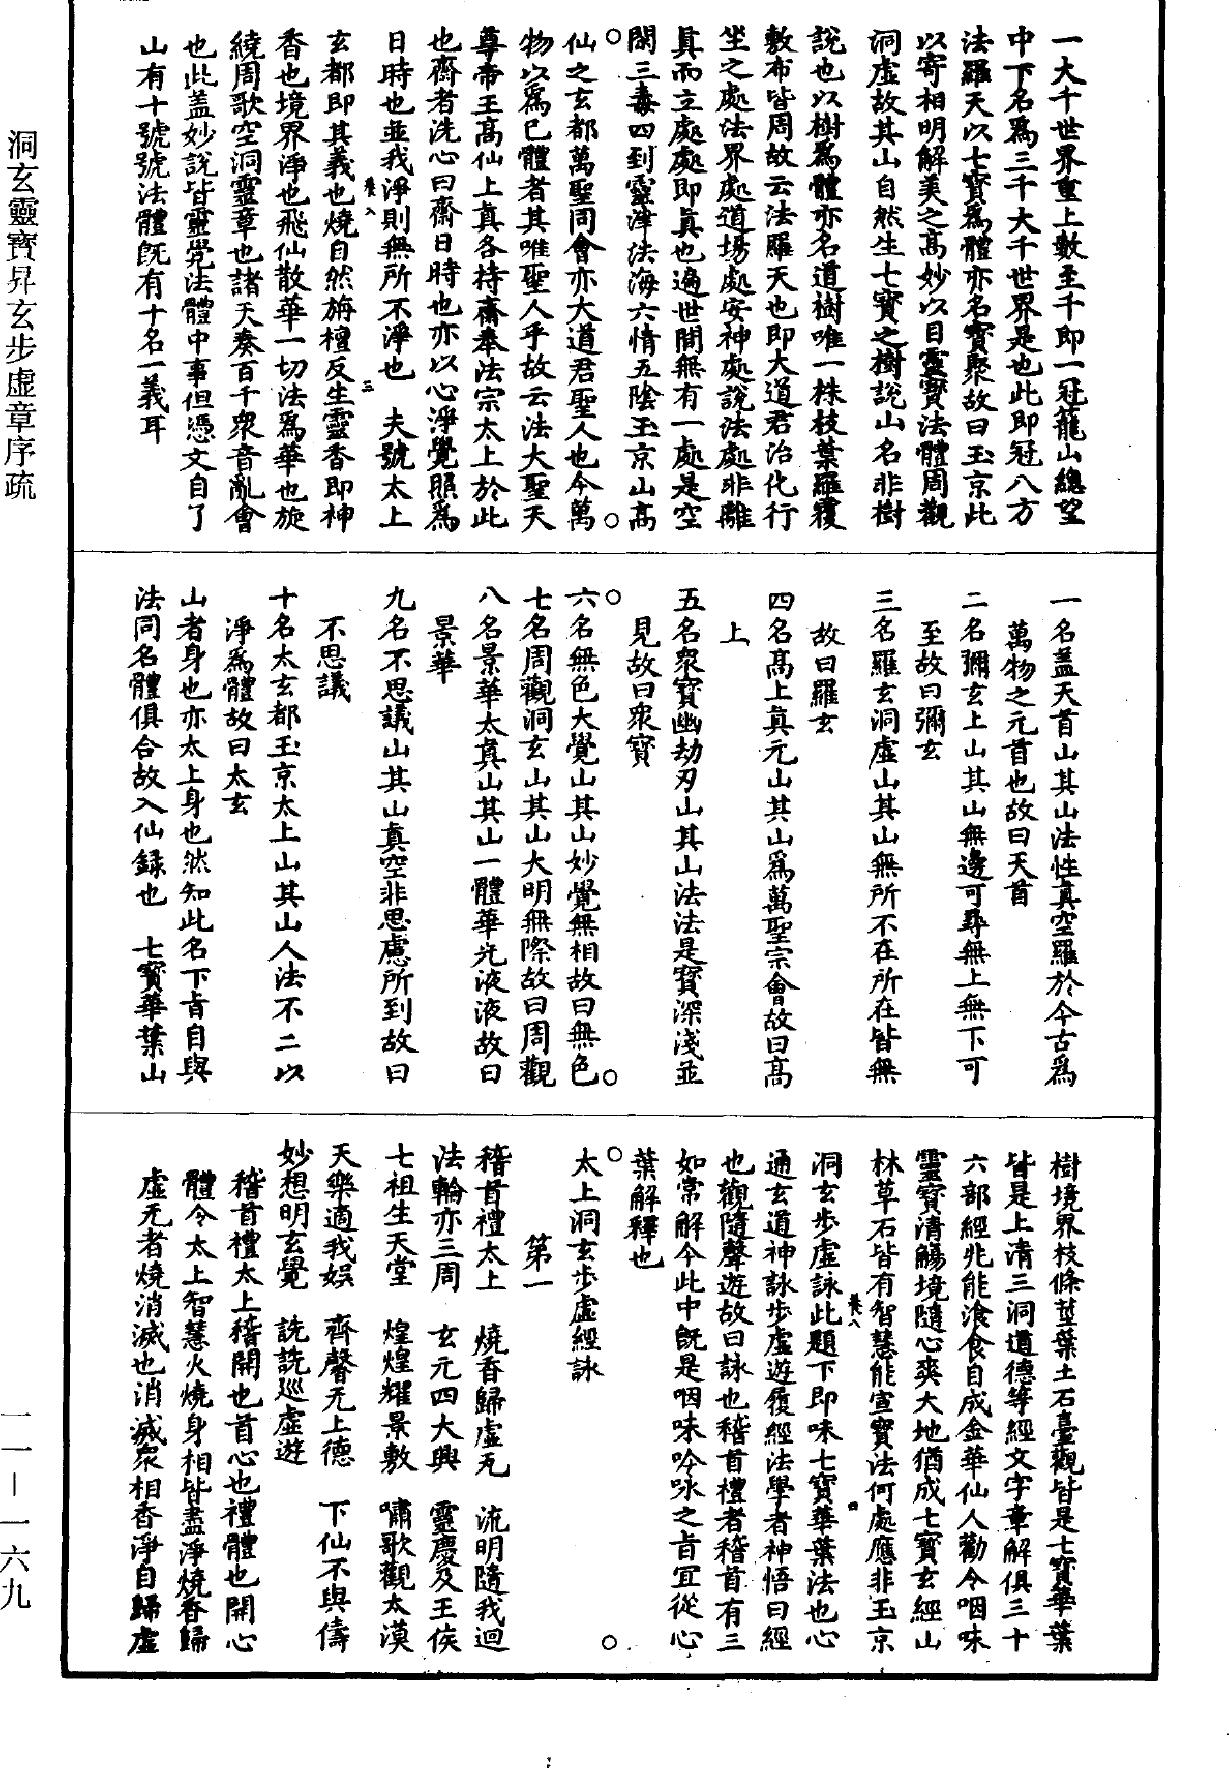 洞玄靈寶昇玄步虛章序疏
一一－一六九
一大千世界重上數至千即一冠籠山總望
中下名爲三千大千世界是也此即冠八方
法羅天以七寶爲體亦名寶聚故曰玉京此
以寄相明解美之高妙以目靈寶法體周觀
洞虛故其山自然生七寶之樹說山名非樹
說也以樹爲體亦名道樹唯一株枝葉羅覆
敷布皆周故云法羅天也即大道君治化行
坐之處法界處道場處安神處說法處非離
真而立處處即真也遍世間無有一處是空
閑三毒四到靈津法海六情五陰玉京山高
仙之玄都萬聖同會亦大道君聖人也今萬
物以爲已體者其唯聖人乎故云法大聖天
尊帝王高仙上真各持齋奉法宗太上於此
也齋者洗心曰齋日時也亦以心淨覺照爲
日時也並我淨則無所不淨也　夫號太上
養八　三
玄都即其義也燒自然旃檀反生靈香即神
香也境界淨也飛仙散華一切法爲華也旋
繞周歌空洞靈章也諸天奏百千衆音亂會
也此盖妙說皆靈覺法體中事但憑文自了
山有十號號法體既有十名一義耳
一名盖天首山其山法性真空羅於今古爲
萬物之元首也故曰天首
二名彌玄上山其山無邊可尋無上無下可
至故曰彌玄
三名羅玄洞虛山其山無所不在所在皆無
故曰羅玄
四名高上真元山其山爲萬聖宗會故曰高
上
五名衆寶幽劫刃山其山法法是寶深淺並
見故曰衆寶
六名無色大覺山其山妙覺無相故曰無色
七名周觀洞玄山其山大明無際故曰周觀
八名景華太真山其山一體華光液液故曰
景華
九名不思議山其山真空非思慮所到故曰
不思議
十名太玄都玉京太上山其山人法不二以
淨爲體故曰太玄
山者身也亦太上身也然知此名下㫖自與
法同名體俱合故入仙録也　七寶華葉山
樹境界枝條莖葉土石臺觀皆是七寶華葉
皆是上清三洞道德等經文字章解俱三十
六部經兆能飡食自成金華仙人勸令咽味
靈寶清觴境隨心爽大地猶成七寶玄經山
林草石皆有智慧能宣寶法何處應非玉京
養八　四
洞玄步虛詠此題下即味七寶華葉法也心
通玄道神詠步虛遊履經法學者神悟曰經
也觀隨聲遊故曰詠也稽首禮者稽首有三
如常解今此中既是咽味吟咏之㫖宜從心
葉解釋也
太上洞玄步虛經詠
第一
稽首禮太上　燒香歸虛无　流明隨我迴
法輪亦三周　玄元四大興　靈慶及王侯
七祖生天堂　煌煌耀景敷　嘯歌觀太漠
天樂適我娱　齊馨无上德　下仙不與儔
妙想明玄覺　詵詵巡虛遊
稽首禮太上稽開也首心也禮體也開心
體令太上智慧火燒身相皆盡淨燒香歸
虛无者燒消滅也消滅衆相香淨自歸虛